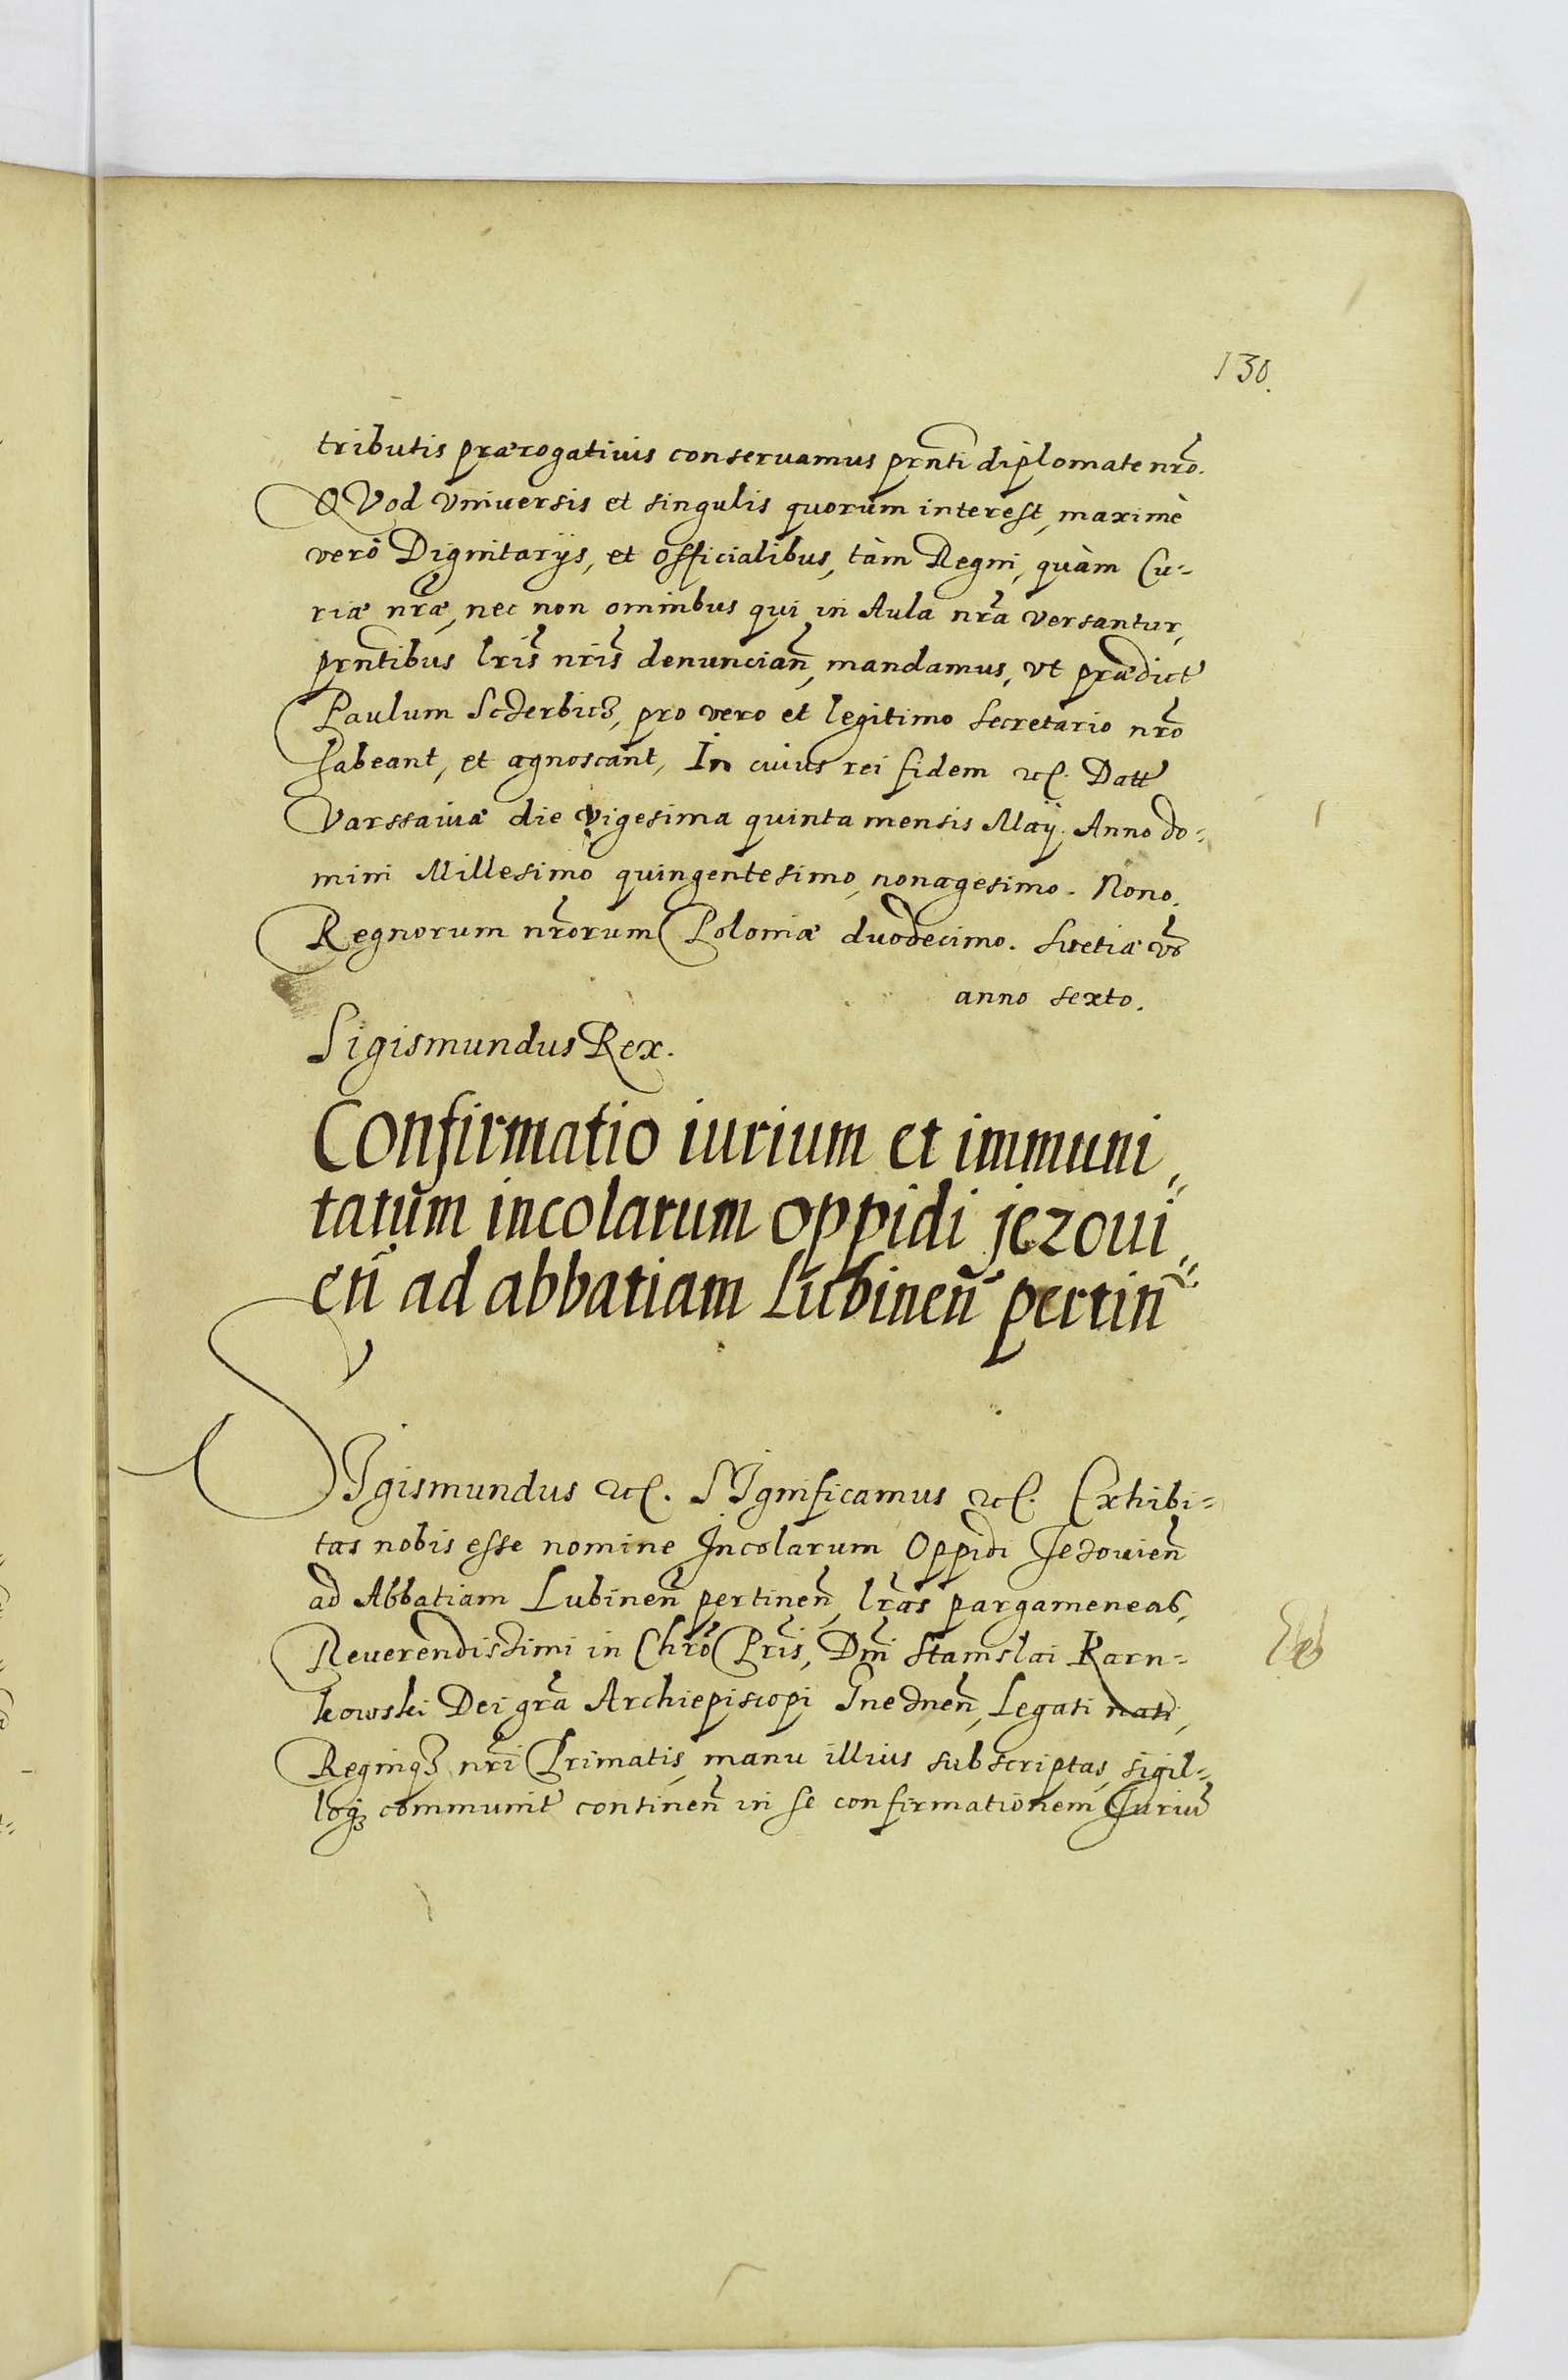 130.
tributis prærogativis conseruamus prnti diplomate nro.
QVod vniuersis et singulis quorum interest, maximè
verò Dignitarijs, et officialibus, tàm Regni, quàm Cu-
riæ nræ, nec non omnibus qui in Aula nra versantur,
prntibus lris nris denuncian, mandamus, vt prædict
Paulum Sczerbicz, pro vero et legitimo Secretario nro
habeant, et agnoscant, In cuius rei fidem etc. Datt
Varssaviæ die vigesima quinta mensis Maij. Anno do-
mini Millesimo quingentesimo, nonagesimo. Nono.
Regnorum nrorum Poloniæ duodecimo. Swetiæ vo
anno sexto.
Sigismundus Rex.
Confirmatio iurium et immuni
tatum incolarum oppidi jezoui
en ad abbatiam Lubinen pertin
SIgismundus etc. SIgnificamus etc. Exhibi-
tas nobis esse nomine Incolarum Oppidi Jezouien
ad Abbatiam Lubinen pertinen, lras pargameneas,
Reuerendissimi in Chro Pris, Dni Stanislai Karn-
kowski Dei gra Archiepiscopi Gneznen, Legati nati,
Regniq3 nri Primatis, manu illius subscriptas, sigil-
loq3 communit continen in se confirmationem Iuriu